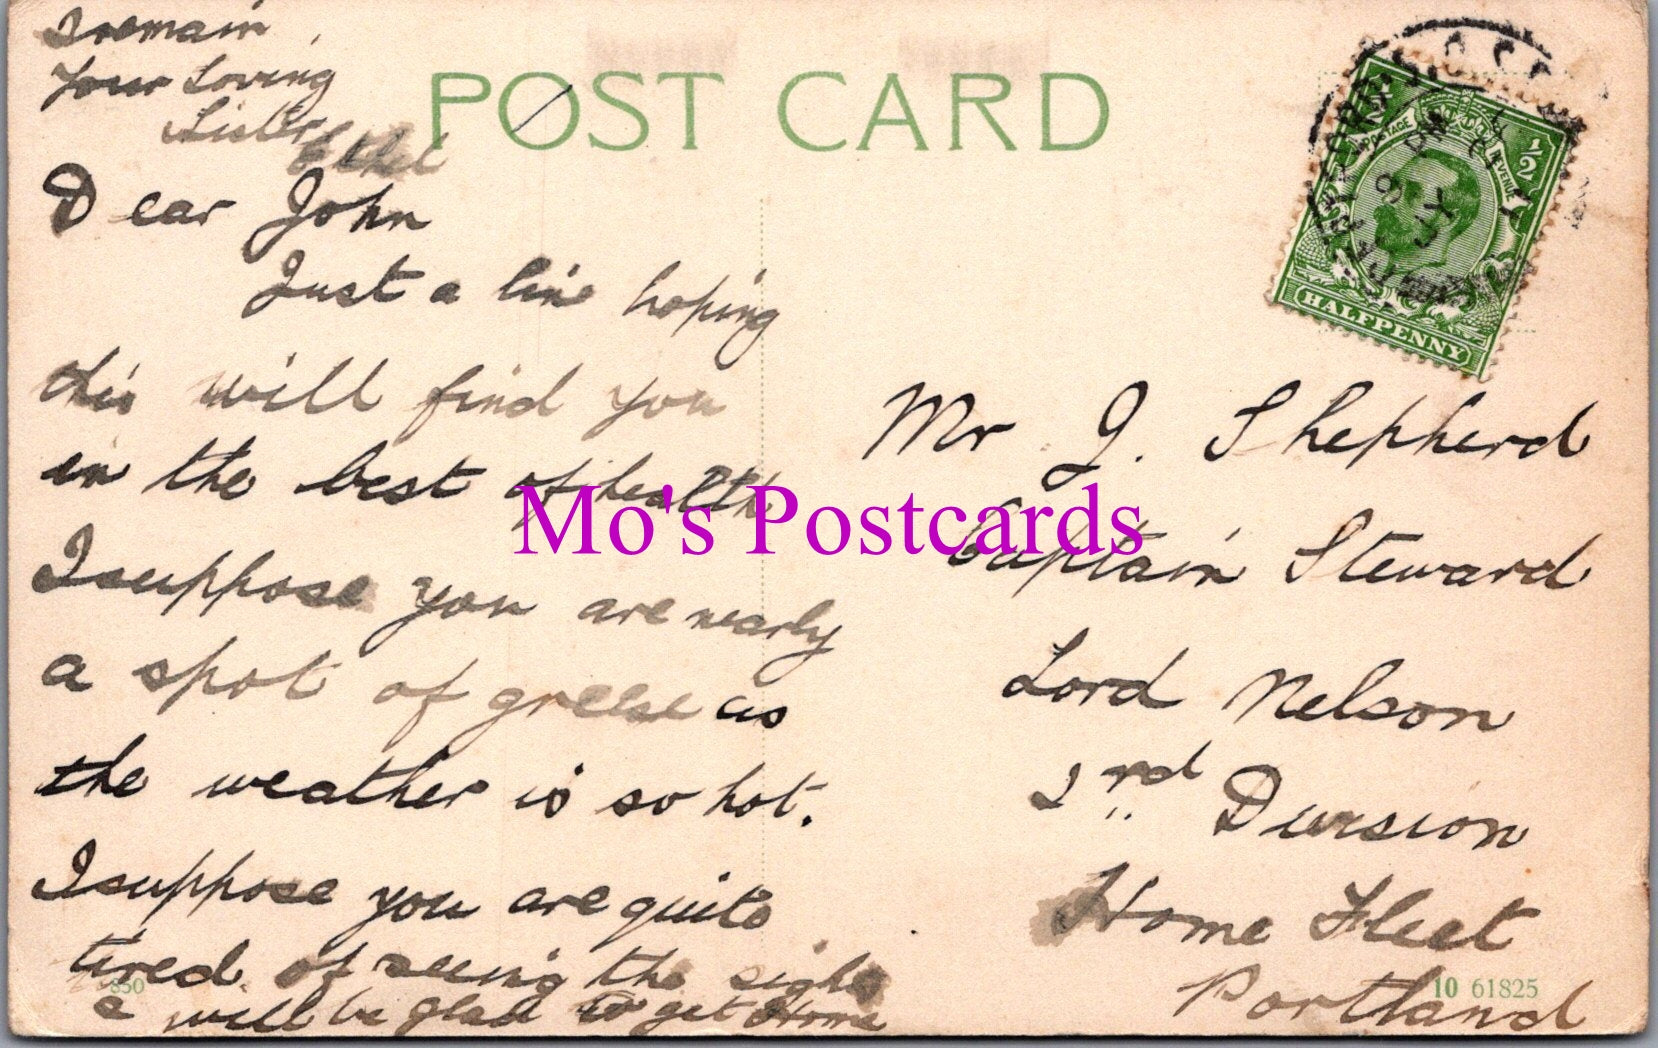 I remain
Your Loving
Sister
Ethel
POST CARD
Dear John
Just a line hoping
this will find you
in the best of health
I suppose you are nearly
a spot of greese as
the weather is so hot.
I suppose you are quite
tired of seeing the sights
& will be glad to get Home
POSTAGE
REVENUE
1/2
1/2
HALFPENNY
Mr J. Shepherd
Captain Steward
Lord Nelson
2rd Division
Home Fleet
Portland
850
10 61825
Mo's Postcards